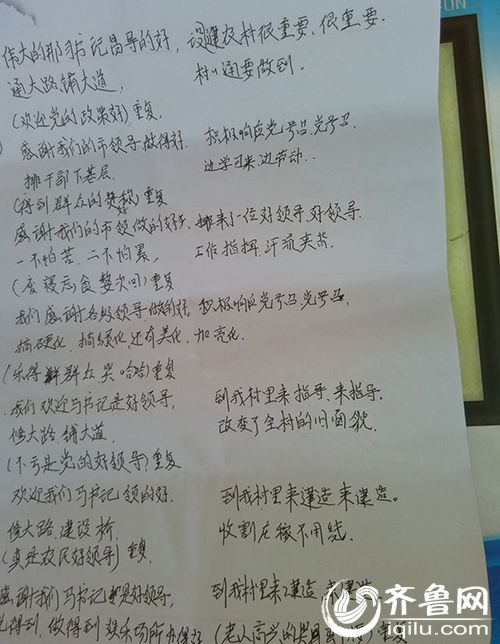 伟大的那习书记昌导的好，设建农村很重要、很重要.
通大路铺大道， 村村通要做到.
(欢迎党的政策好)重复,
感谢我们的市领导做得好. 积极响应党号召党号召.
排干部下基层. 边学习来边劳动..
(得到群众的赞称)重复
感谢我们的市领做的好好、挪来了一位好领导.好领导.
一不怕苦.二不怕累， 工作指挥.汗流夹背.
重复
我们感谢各级领导做的好.积极响应党号召党号召.
搞硬化.搞绿化还有美化.加亮化.
(乐得群群众哭哈哈)重复
我们欢迎马书记是好领导， 到我村里来指导.来指导.
修大路.铺大道， 改变了全村的旧面貌.
(不亏是党的好领导)重复
欢迎我们马书记领的好. 到我村里来建造来建造。
修大路.建设桥， 收割庄稼不用绕.
(真是农民好领导)重复.
感谢我们马书记都是好领导， 到我村里来建造
得到.做得到娱乐场所办得好(老人高兴的
齐鲁网
iqilu.com
SUN